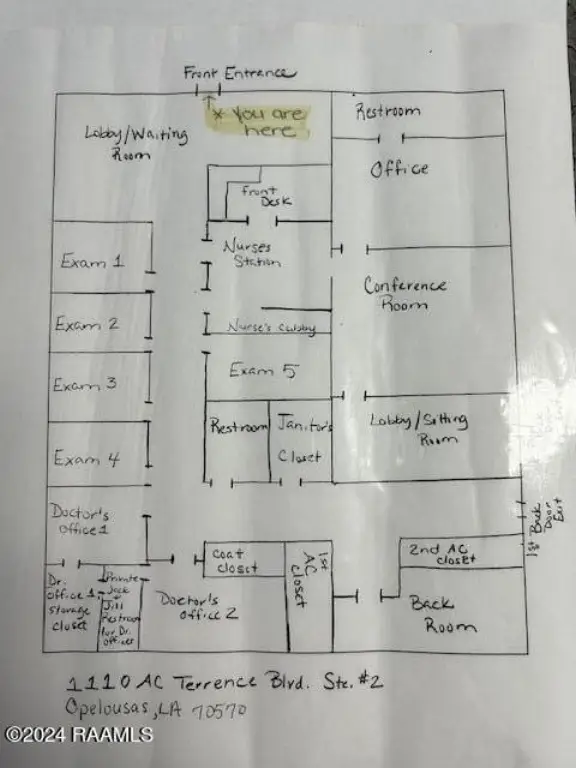 Front Entrance
* You are
here
Restroom
Lobby/Waiting
Room
Office
Front
Desk
Nurses
Station
Exam 1
Conference
Room
Exam 2
Nurse's Cubby
Exam 5
Exam 3
Restroom
Janitor's
Closet
Lobby/Sitting
Room
Exam 4
Doctor's
Office 1
1st Back
Door
Exit
Coat
closet
1st
AC
closet
2nd AC
closet
Dr.
office 1
storage
closet
Private
Jack
Jill
Restroom
for Dr.
offices
Doctor's
office 2
Back
Room
1110 AC Terrence Blvd. Ste. #2
Opelousas, LA 70570
©2024 RAAMLS